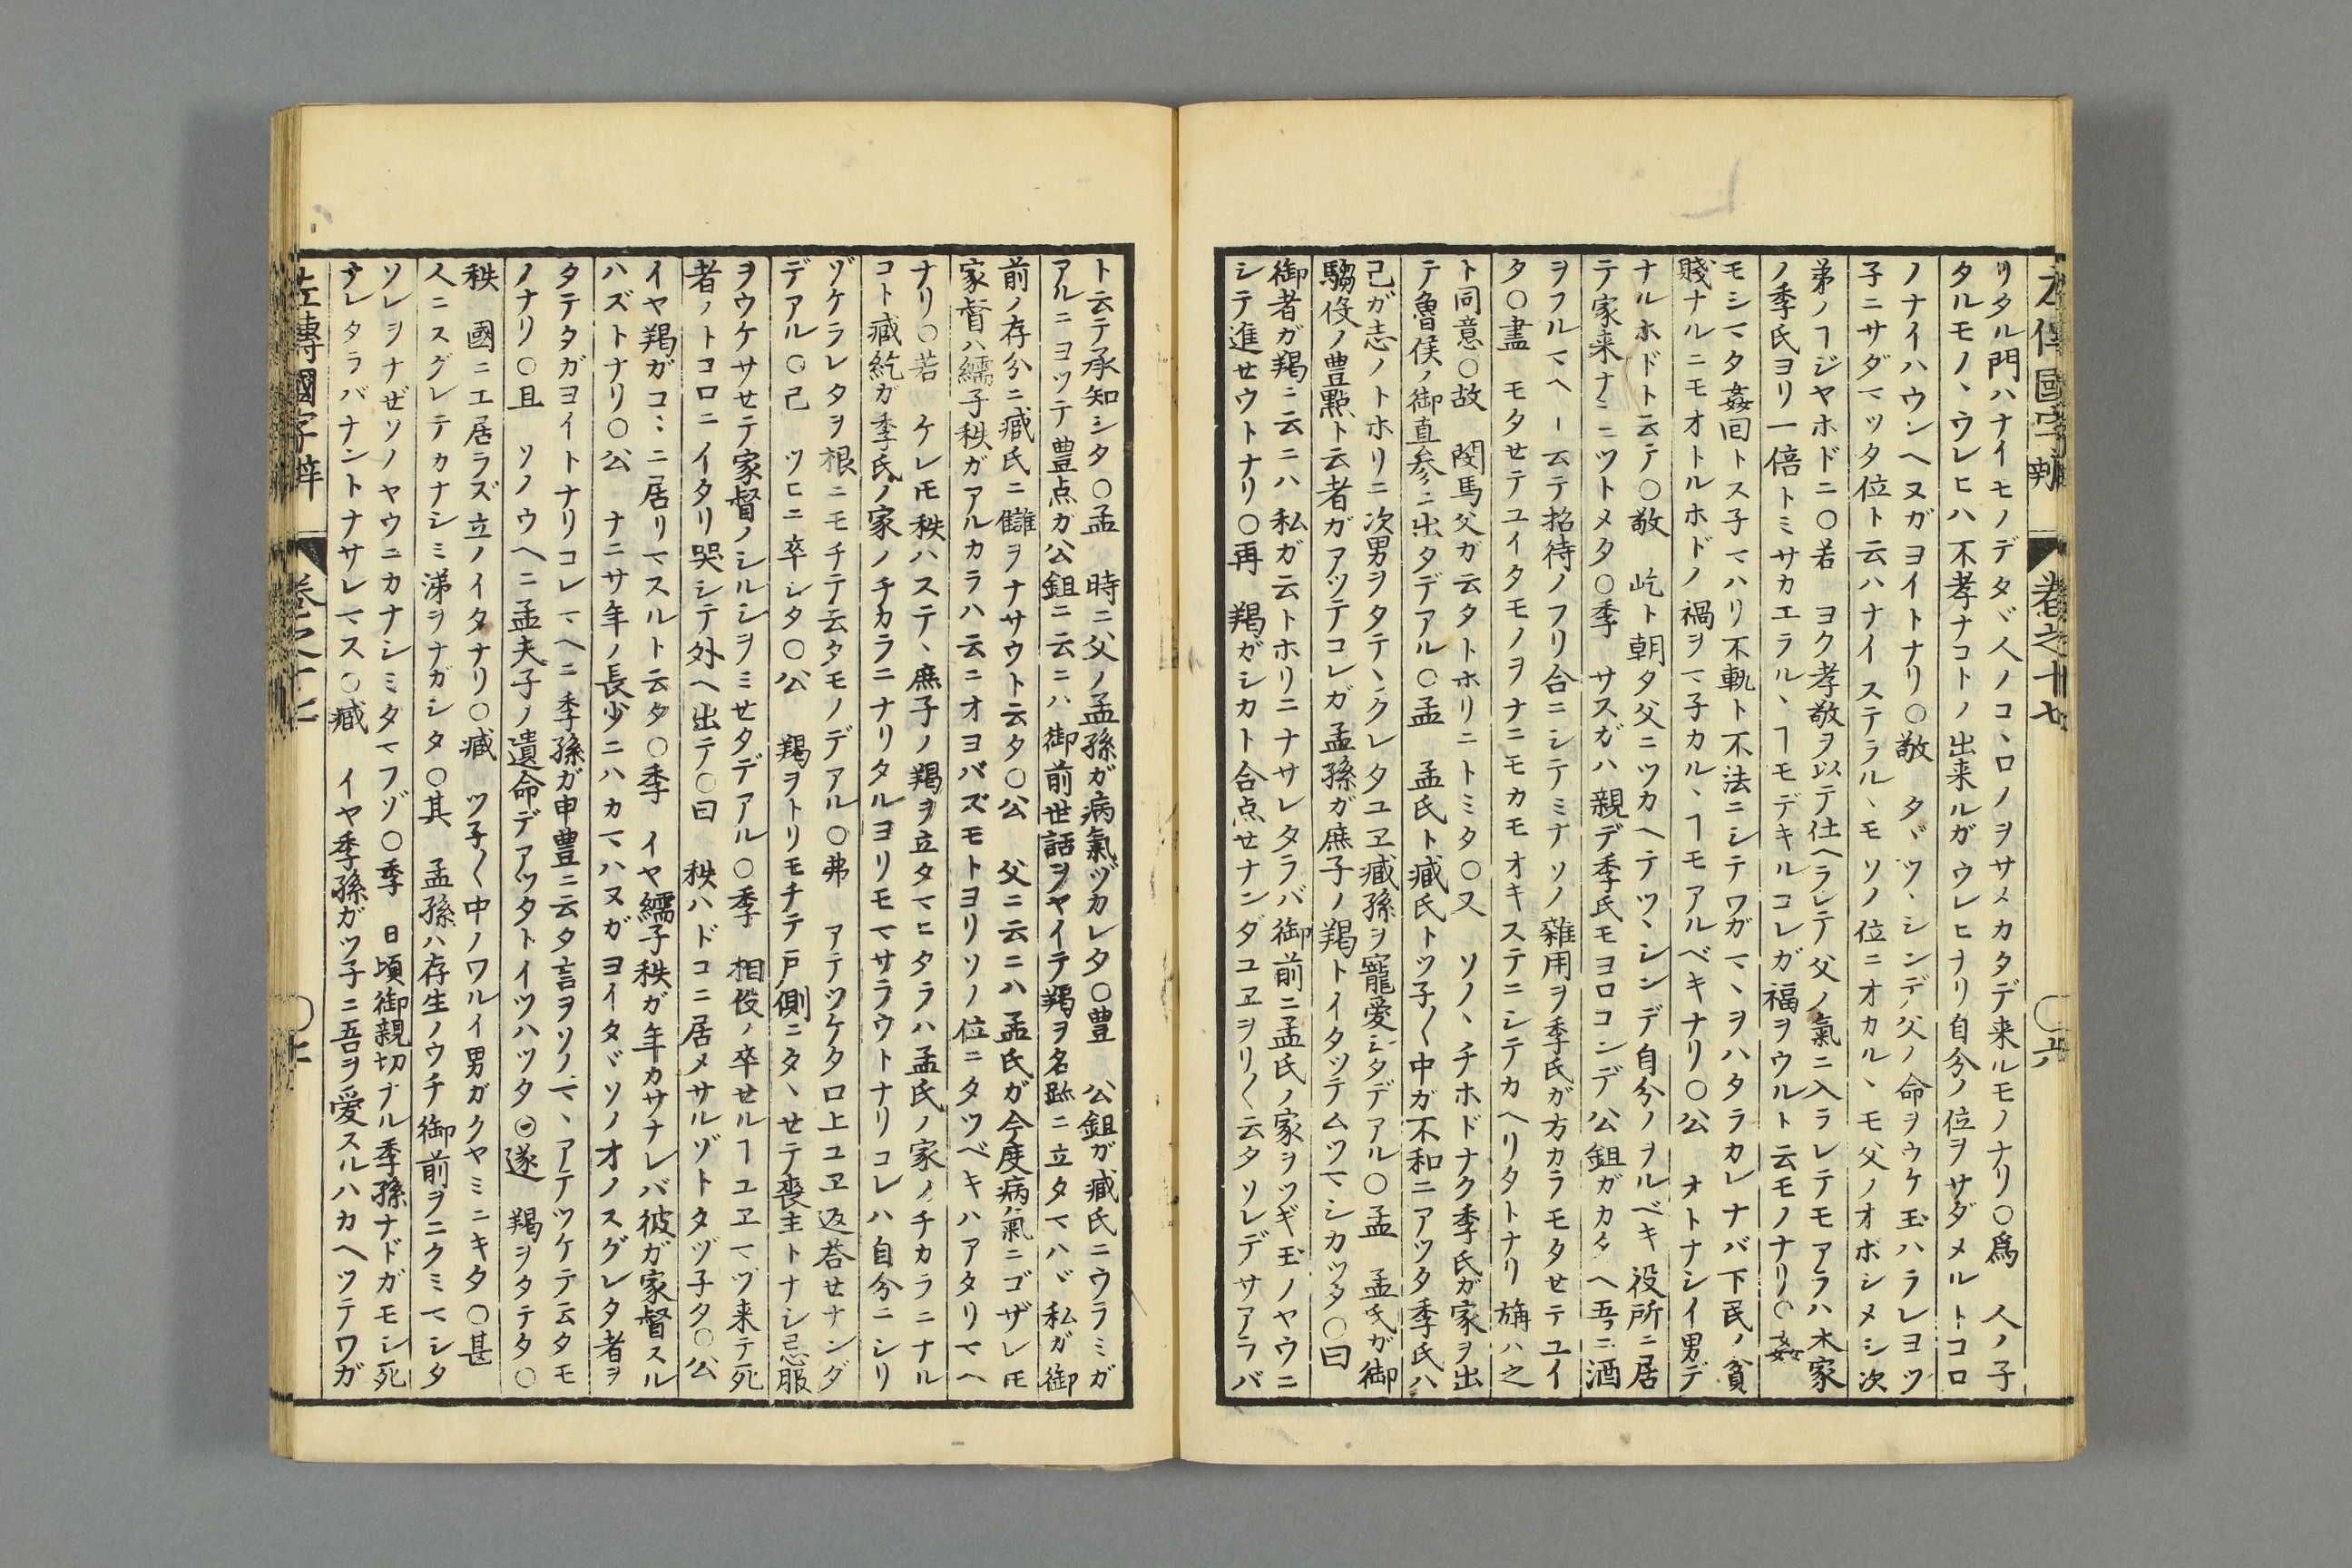 左傳國字辨 巻之十七 〇六
リタル門ハナイモノデタヾ人ノコヽロノヲサメカタデ来ルモノナリ〇爲 人ノ子
タルモノヽウレヒハ不孝ナコトノ出来ルガウレヒナリ自分ノ位ヲサダメルトコロ
ノナイハウンヘヌガヨイトナリ〇敬 タヾツヽシンデ父ノ命ヲウケ玉ハラレヨツ
子ニサダマツタ位ト云ハナイステラルヽモソノ位ニオカルヽモ父ノオボシメシ次
弟ノヿジヤホドニ〇若 ヨク孝敬ヲ以テ仕ヘラレテ父ノ氣ニ入ラレテモアラハ本家
ノ季氏ヨリ一倍トミサカエラルヽヿモデキルコレガ福ヲウルト云モノナリ〇姦
モシマタ姦回トス子マハリ不軌ト不法ニシテワガマヽヲハタラカレナバ下民ノ貧
賤ナルニモオトルホドノ禍ヲマ子カルヽヿモアルベキナリ〇公 オトナシイ男デ
ナルホドト云テ〇敬 屹ト朝夕父ニツカヘテツヽシンデ自分ノヲルベキ役所ニ居
テ家来ナミニツトメタ〇季 サスガハ親デ季氏モヨロコンデ公鉏ガカタヘ吾ニ酒
ヲフルマヘト云テ招待ノフリ合ニシテミナソノ雜用ヲ季氏ガ方カラモタせテユイ
タ〇盡 モタせテユイタモノヲナニモカモオキステニシテカヘリタトナリ旃ハ之
ト同意〇故 閔馬父ガ云タトホリニトミタ〇又 ソノヽチホドナク季氏ガ家ヲ出
テ魯侯ノ御直参ニ出タデアル〇孟 孟氏ト臧氏トツ子〱中ガ不和ニアツタ季氏ハ
己ガ志ノトホリニ次男ヲタテヽクレタユヱ臧孫ヲ寵愛シタデアル〇孟 孟氏ガ御
騶役ノ豊點ト云者ガアツテコレガ孟孫ガ庶子ノ羯トイタツテムツマシカツタ〇曰
御者ガ羯ニ云ニハ私ガ云トホリニナサレタラバ御前ニ孟氏ノ家ヲツギ玉ノヤウニ
シテ進せウトナリ〇再 羯ガシカト合点せナンダユヱヲリ〱云タソレデサアラバ
ト云テ承知シタ〇孟 時ニ父ノ孟孫ガ病氣ヅカレタ〇豊 公鉏ガ臧氏ニウラミガ
アルニヨツテ豊点ガ公鉏ニ云ニハ御前世話ヲヤイテ羯ヲ名跡ニ立タマハヾ私ガ御
前ノ存分ニ臧氏ニ讎ヲナサウト云タ〇公 父ニ云ニハ孟氏ガ今度病氣ニゴザレ𪜈
家督ハ繻子秩ガアルカラハ云ニオヨバズモトヨリソノ位ニタツベキハアタリマヘ
ナリ〇若 ケレ𪜈秩ハステヽ庶子ノ羯ヲ立タマヒタラハ孟氏ノ家ノチカラニナル
コト臧紇ガ季氏ノ家ノチカラニナリタルヨリモマサラウトナリコレハ自分ニシリ
ヅケラレタヲ根ニモチテ云タモノデアル〇弗 アテツケタ口上ユヱ返荅せナンダ
デアル〇己 ツヒニ卒シタ〇公 羯ヲトリモチテ戸側ニタヽせテ喪主トナシ忌服
ヲウケサせテ家督ノシルシヲミせタデアル〇季 相役ノ卒せルヿユヱマヅ来テ死
者ノトコロニイタリ哭シテ外ヘ出テ〇曰 秩ハドコニ居メサルゾトタヅ子タ〇公
イヤ羯ガコヽニ居リマスルト云タ〇季 イヤ繻子秩ガ年カサナレバ彼ガ家督スル
ハズトナリ〇公 ナニサ年ノ長少ニハカマハヌガヨイタヾソノオノスグレタ者ヲ
タテタガヨイトナリコレマヘニ季孫ガ申豊ニ云タ言ヲソノマヽアテツケテ云タモ
ノナリ〇且 ソノウヘニ孟夫子ノ遺命デアツタトイツハツタ〇遂 羯ヲタテタ〇
秩 國ニエ居ラズ立ノイタナリ〇臧 ツ子〱中ノワルイ男ガクヤミニキタ〇甚
人ニスグレテカナシミ涕ヲナガシタ〇其 孟孫ハ存生ノウチ御前ヲニクミマシタ
ソレヲナぜソノヤウニカナシミタマフゾ〇季 日頃御親切ナル季孫ナドガモシ死
ナレタラバナントナサレマス〇臧 イヤ季孫ガツ子ニ吾ヲ愛スルハカヘツテワガ
左傳國字辨 巻之十七 〇七